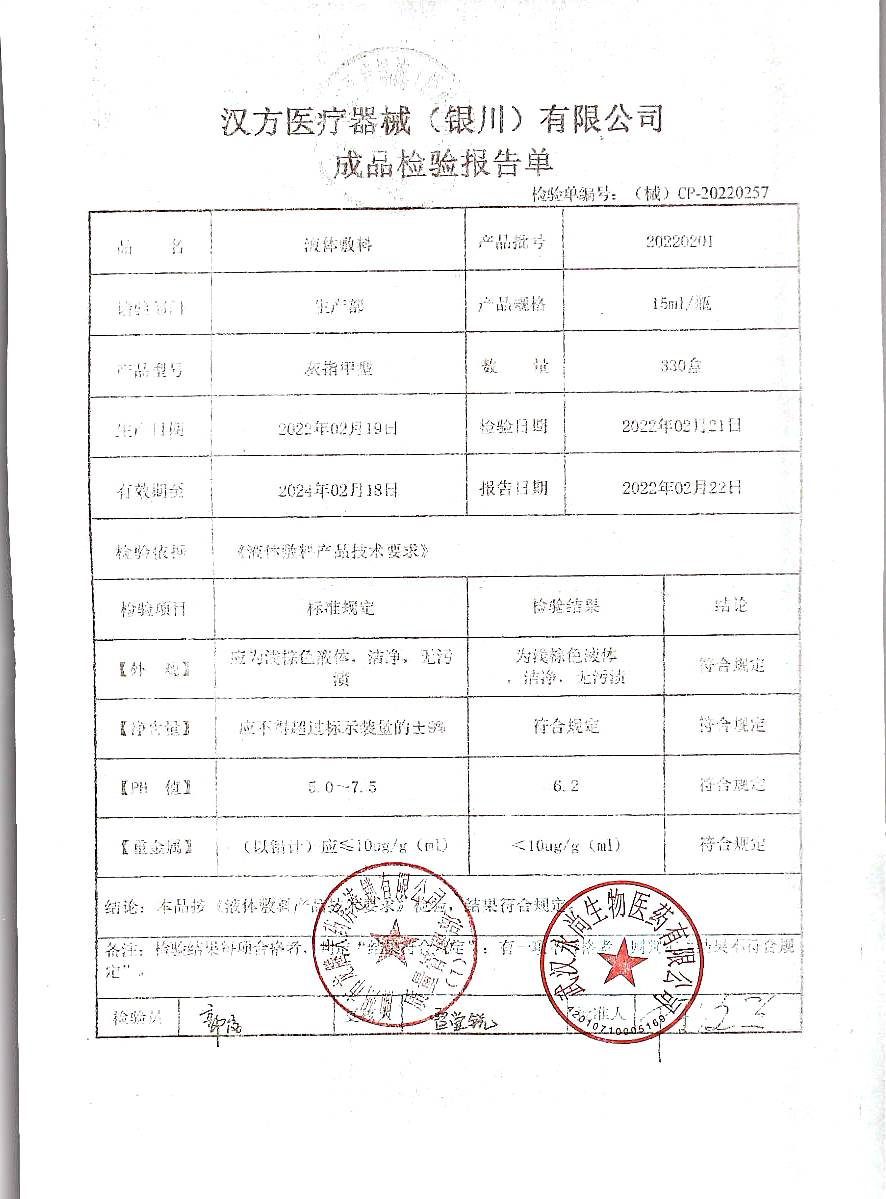 汉方医疗器械（银川）有限公司
成品检验报告单
检验单编号：（械）CP-20220257
品 名 液体敷料 产品批号 20220201
生产部 产品规格 15ml/瓶
产品型号 灰指甲型 数 量 330盒
生产日期 2022年02月19日 检验日期 2022年02月21日
有效期至 2024年02月18日 报告日期 2022年02月22日
检验依据 《液体敷料产品技术要求》
检验项目 标准规定 检验结果 结论
【外 观】 应为浅棕色液体，洁净，无污渍 为浅棕色液体，洁净，无污渍 符合规定
【净含量】 应不得超过标示装量的±9% 符合规定 符合规定
【PH 值】 5.0~7.5 6.2 符合规定
【重金属】 （以铅计）应≤10ug/g（ml） <10ug/g（ml） 符合规定
结论：本品按《液体敷料产品技术要求》检验，结果符合规定
备注：检验结果每项合格者，“结果符合规定”；有一项 格者，结果不符合规
定”。
检验员 批准人
有限公司
质量管理专用章
(1)
武汉永尚生物医药有限公司
42010710005169